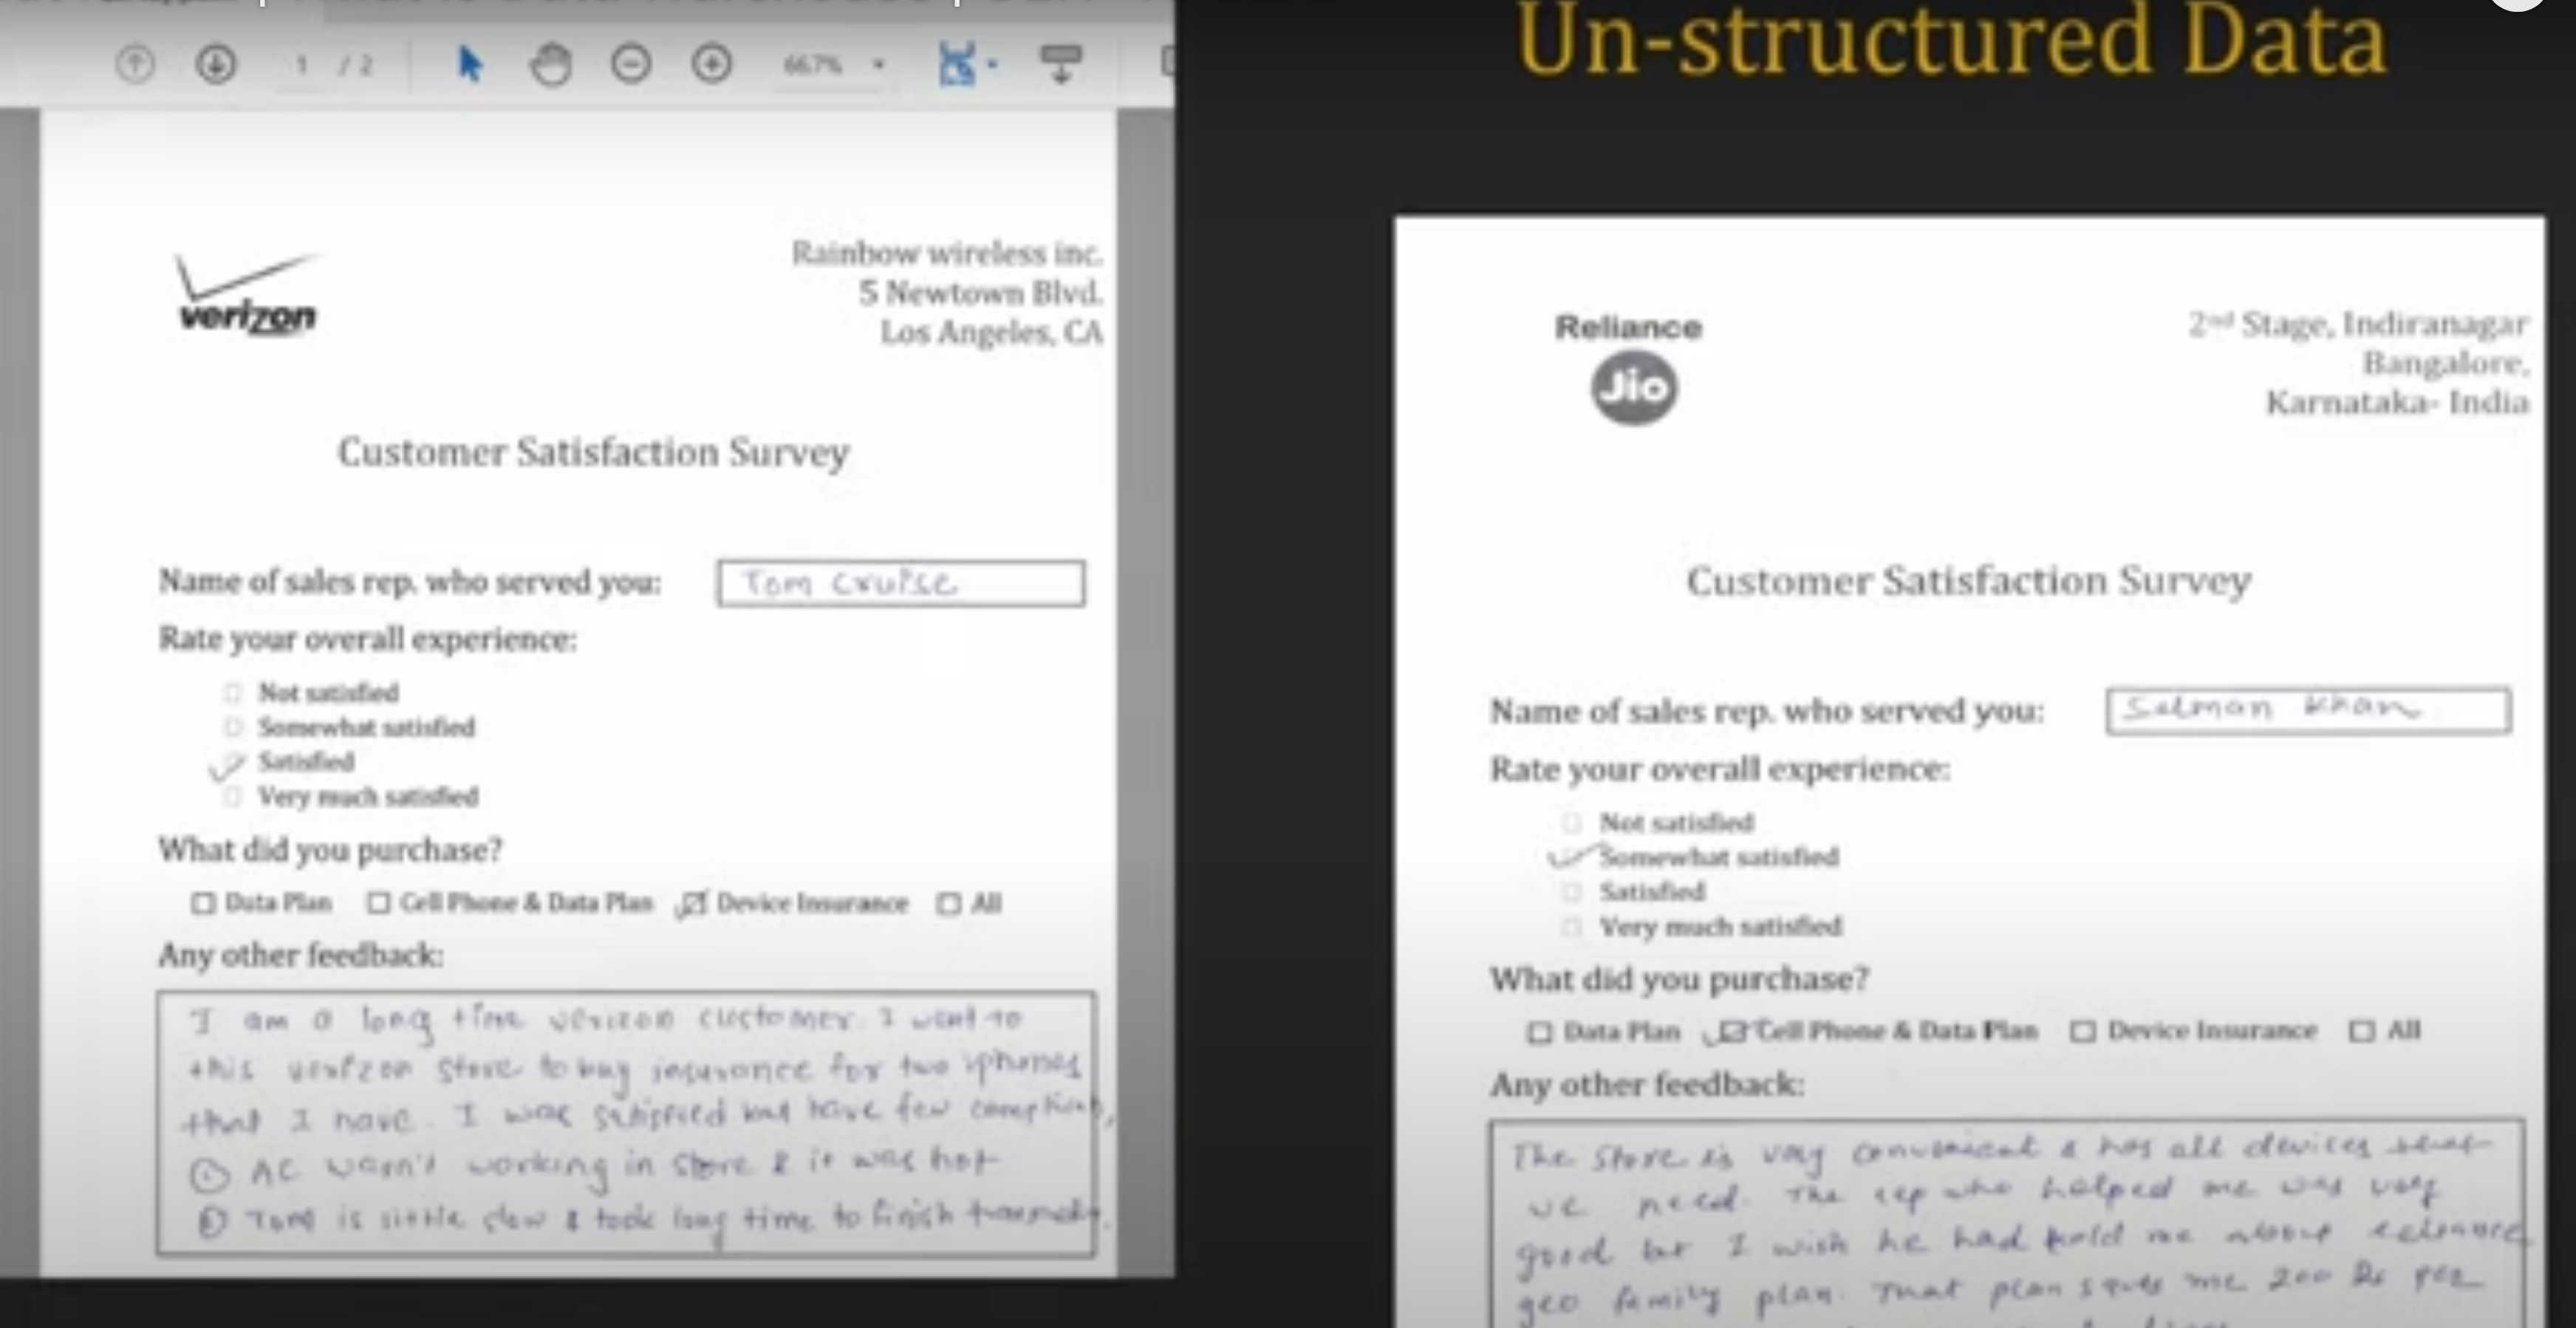 Un-structured Data
1 / 2
66.7%
verizon
Rainbow wireless inc.
5 Newtown Blvd.
Los Angeles, CA
Customer Satisfaction Survey
Name of sales rep. who served you: Tom Cruise
Rate your overall experience:
Not satisfied
Somewhat satisfied
Satisfied
Very much satisfied
What did you purchase?
Data Plan Cell Phone & Data Plan Device Insurance All
Any other feedback:
I am a long time verizon customer. I went to
this verizon store to buy insurance for two iphones
that I have. I was satisfied but have few
① AC wasn't working in store & it was hot
② Tom is little slow & took long time to finish
Reliance
Jio
2nd Stage, Indiranagar
Bangalore,
Karnataka- India
Customer Satisfaction Survey
Name of sales rep. who served you: Salman Khan
Rate your overall experience:
Not satisfied
Somewhat satisfied
Satisfied
Very much satisfied
What did you purchase?
Data Plan Cell Phone & Data Plan Device Insurance All
Any other feedback:
The store is very convenient & has all devices that
we need. The rep who helped me was very
good but I wish he had told me about reliance
geo family plan. That plan saves me 200 Rs per